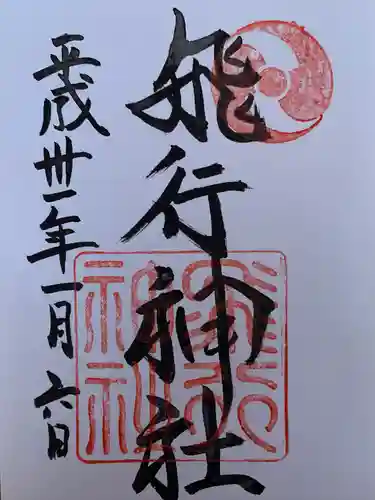 飛行神社
平成卅一年一月六日
飛行
神社